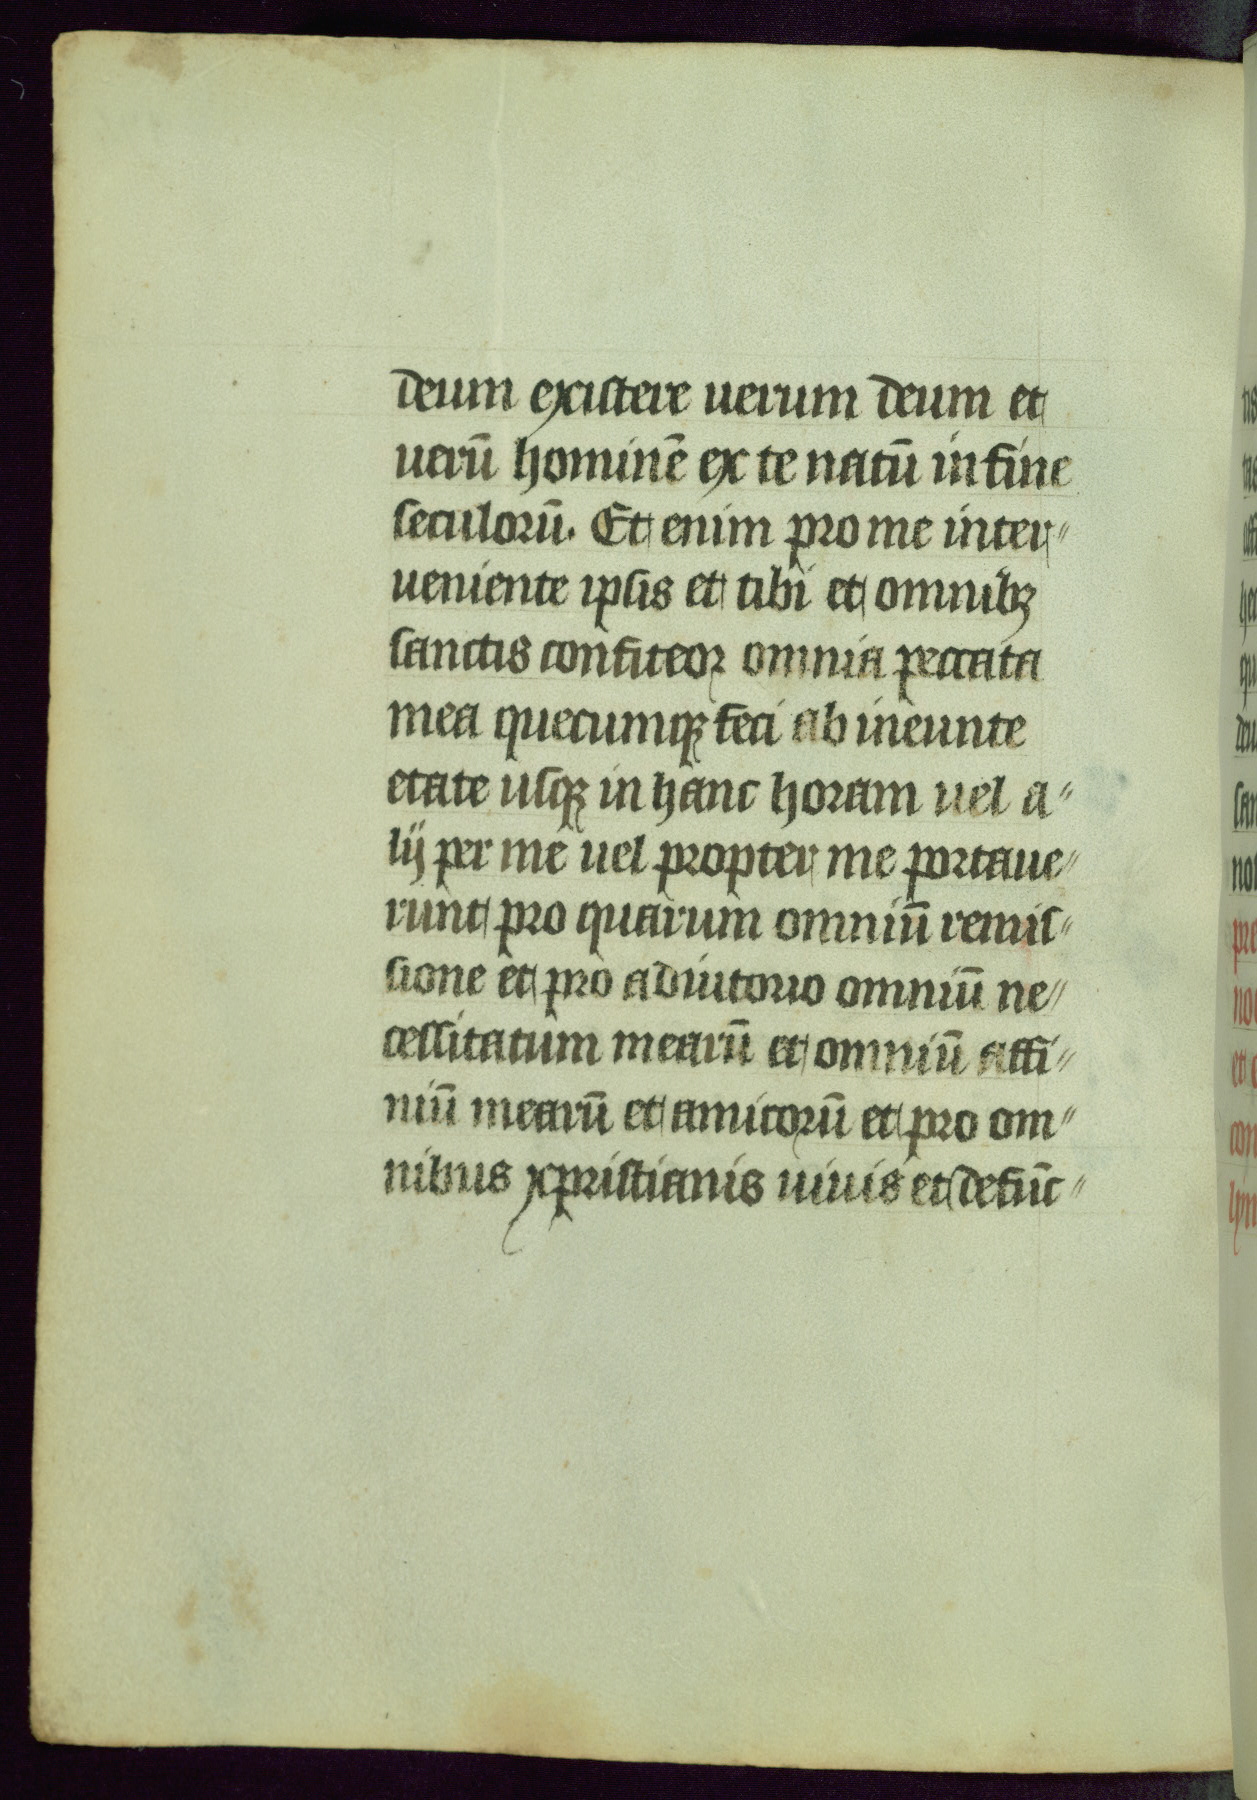 deum existere uerum deum et
uerū hominē ex te natū in fine
seculorū. Et enim pro me inter〃
ueniente ipsis et tibi et omnibꝫ
sanctis confiteor omnia peccata
mea quecumqꝫ feci ab ineunte
etate usqꝫ in hanc horam uel a〃
lij per me uel propter me portaue〃
runt pro quarum omniū remis〃
sione et pro adiutorio omniū ne〃
cessitatum mearū et omniū affi〃
niū mearū et amicorū et pro om〃
nibus xpristianis uiuis et defūc〃